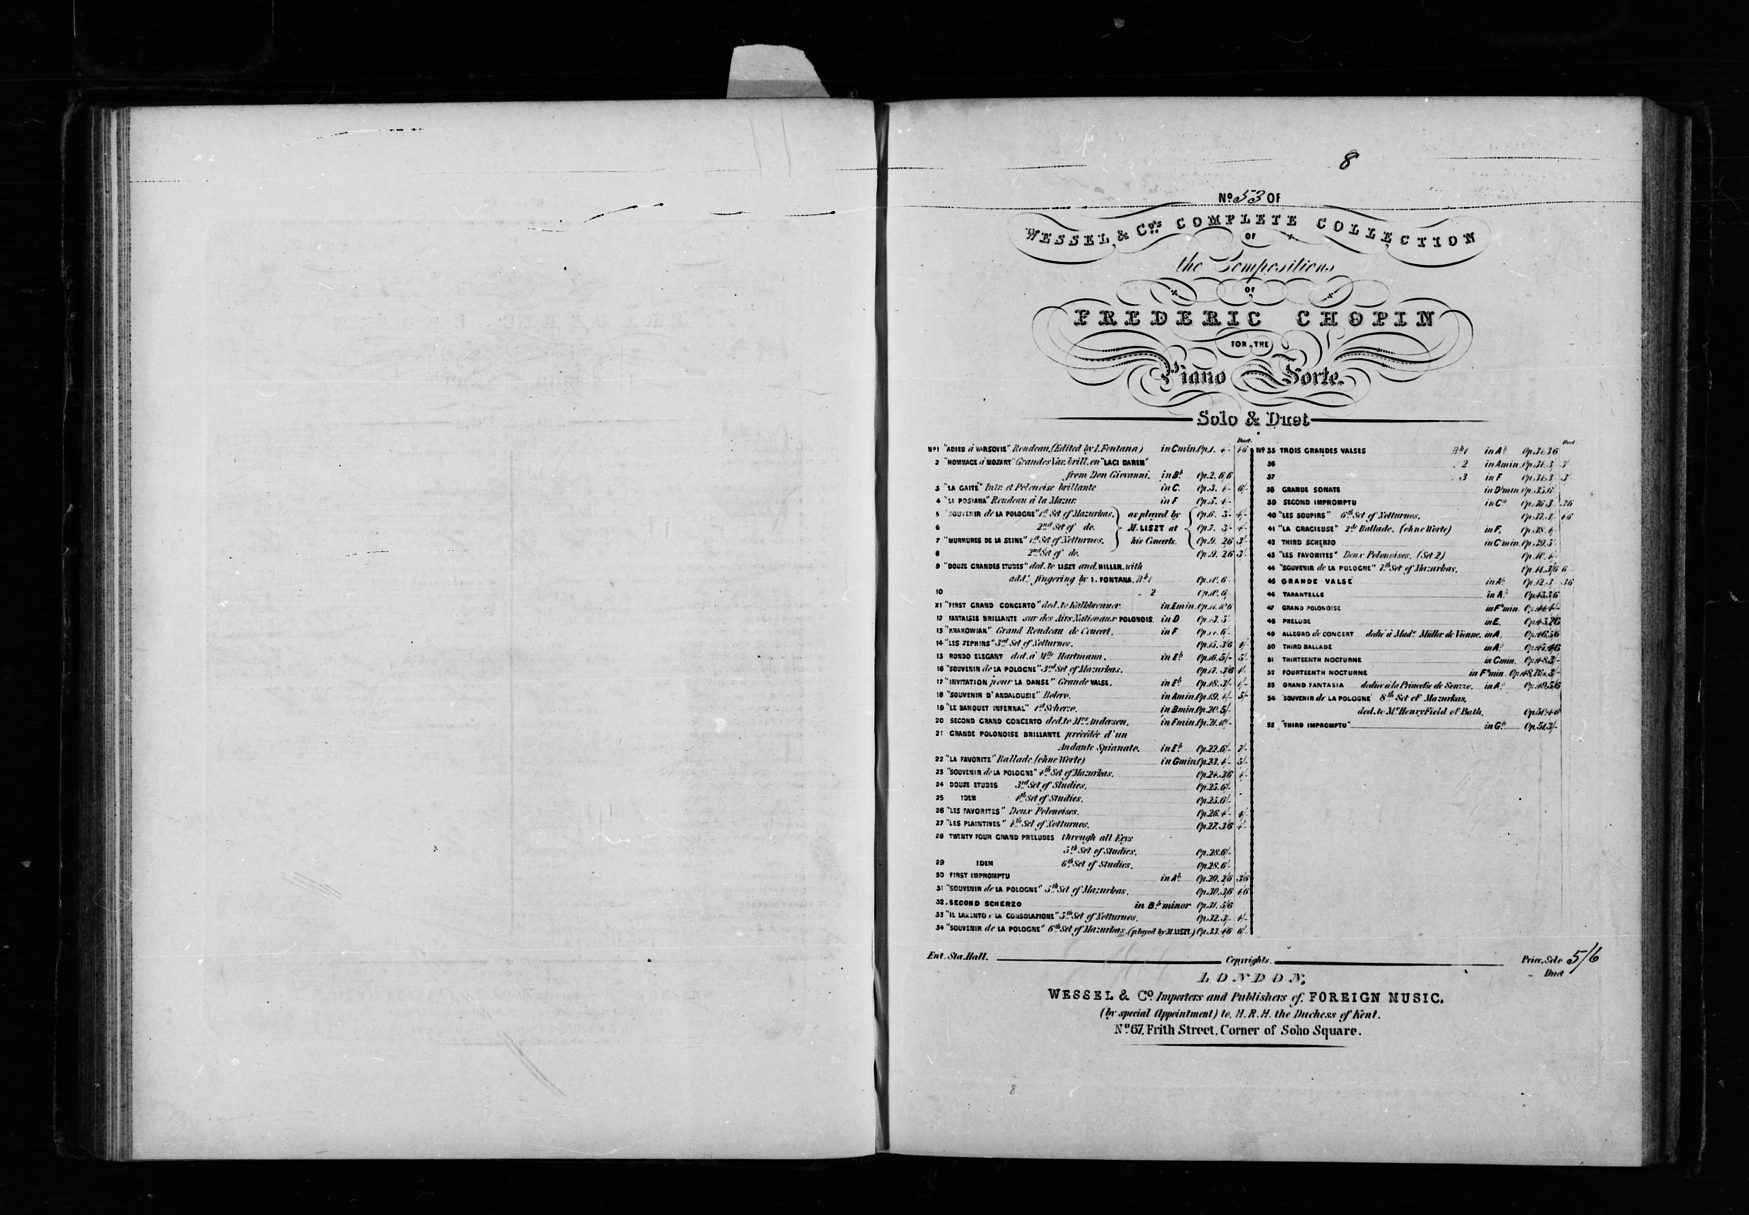 8
No. 53 OF
WESSEL & Co's COMPLETE COLLECTION
OF
the Compositions
OF
FREDERIC CHOPIN
FOR THE
Piano Forte.
Solo & Duet
Duet
No 1 "ADIEU à VARSOVIE" Rondeau, (Edited by J. Fontana) in C min. Op.1. 4/-
2 "HOMMAGE à MOZART" Grandes Var. brill. en "LACI DAREM"
from Don Giovanni. in Bb Op.2. 6/6
3 "LA GAITÉ" Intr. et Polonoise brillante in C. Op.3. 4/- 6/-
4 "LA POSIANA" Rondeau à la Mazur in F Op.5. 4/-
5 "SOUVENIR de LA POLOGNE" 1st Set of Mazurkas. as played by Op.6. 3/- 4/-
6 2nd Set of do. M. LISZT at Op.7. 3/- 4/-
7 "MURMURES DE LA SEINE" 1st Set of Notturnos. his Concerts. Op.9. 2/6 3/-
8 2nd Set of do. Op.9. 2/6 3/-
9 "DOUZE GRANDES ETUDES" ded. to LISZT and HILLER, with
addl. fingering by I. FONTANA. Bk 1 Op.10. 6/-
10 2 Op.10. 6/-
11 "FIRST GRAND CONCERTO" ded. to Kalkbrenner in E min. Op.11.
12 FANTAISIE BRILLANTE sur des Airs Nationaux POLONOIS. in D
13 "KRAKOWIAK" Grand Rondeau de Concert. in F
14 "LES ZEPHIRS" 3rd Set of Notturnos. Op.15. 3/6 4/-
15 RONDO ELEGANT ded. à Mlle Hartmann. in Eb Op.16. 5/- 5/-
16 "SOUVENIR de LA POLOGNE" 3rd Set of Mazurkas. Op.17. 3/6 4/-
17 "INVITATION pour LA DANSE" Grande VALSE. in Eb Op.18.
18 "SOUVENIR D'ANDALOUSIE" Bolero. in A min. Op.19. 4/- 5/-
19 "LE BANQUET INFERNAL" 1st Scherzo. in B min. Op.20. 5/-
20 SECOND GRAND CONCERTO ded. to Mrs. Anderson. in F min. Op.21.
21 GRANDE POLONOISE BRILLANTE précédée d'un
Andante Spianato. in Eb Op.22. 6/-
22 "LA FAVORITE" Ballade. (ohne Worte) in G min. Op.23. 4/- 5/-
23 "SOUVENIR de LA POLOGNE" 4th Set of Mazurkas. Op.24. 3/6 4/-
24 DOUZE ETUDES 3rd Set of Studies. Op.25. 6/-
25 IDEM 4th Set of Studies. Op.25. 6/-
26 "LES FAVORITES" Deux Polonoises. Op.26. 4/- 4/-
27 "LES PLAINTIVES" 4th Set of Notturnos. Op.27. 3/6 4/-
28 TWENTY FOUR GRAND PRELUDES through all Keys
5th Set of Studies. Op.28. 6/-
29 IDEM 6th Set of Studies. Op.28. 6/-
30 FIRST IMPROMPTU in Ab Op.29. 2/6 3/6
31 "SOUVENIR de LA POLOGNE" 5th Set of Mazurkas. Op.30. 3/6 4/6
32 SECOND SCHERZO in Bb minor Op.31. 5/6
33 "IL LAMENTO e LA CONSOLAZIONE" 5th Set of Notturnos. Op.32. 3/- 4/-
34 "SOUVENIR de LA POLOGNE" 6th Set of Mazurkas (played by M. LISZT) Op.33. 4/6 6/-
Duet
No 35 TROIS GRANDES VALSES No 1 in Ab Op.34. 3/6
36 2 in A min. Op.34. 3/- 3/-
37 3 in F Op.34. 3/- 3/-
38 GRANDE SONATE Op.35. 6/-
39 SECOND IMPROMPTU Op.36. 3/- 3/6
40 "LES SOUPIRS" 6th Set of Notturnos. Op.37. 3/- 4/6
41 "LA GRACIEUSE" 2de Ballade. (ohne Worte) in F. Op.38. 4/-
42 THIRD SCHERZO in C min. Op.39. 5/-
43 "LES FAVORITES" Deux Polonoises. (Set 2) Op.40. 4/-
44 "SOUVENIR de LA POLOGNE" 7th Set of Mazurkas. Op.41. 3/6 6
45 GRANDE VALSE in Ab Op.42. 3/- 3/6
46 TARANTELLE in Ab Op.43. 3/6
47 GRAND POLONOISE in F# min. Op.44. 4/-
48 PRELUDE in E. Op.45. 2/6
49 ALLEGRO de CONCERT dedié à Madle Müller de Vienne. in A. Op.46. 5/6
50 THIRD BALLADE in Ab Op.47. 4/6
51 THIRTEENTH NOCTURNE in C min. Op.48. 3/-
52 FOURTEENTH NOCTURNE in F# min. Op.48. 3/-
53 GRAND FANTASIA dediée à la Princesse de Souzzo. in Ab Op.49. 5/6
54 SOUVENIR de LA POLOGNE 8th Set of Mazurkas,
ded. to Mr. Henry Field of Bath. Op.50. 4/6
55 "THIRD IMPROMPTU" in Gb Op.51. 3/-
Ent. Sta. Hall. Copyrights. Price, Solo 5/6
Duet
LONDON,
WESSEL & Co. Importers and Publishers of FOREIGN MUSIC.
(by special Appointment) to H.R.H. the Duchess of Kent.
No. 67, Frith Street, Corner of Soho Square.
8